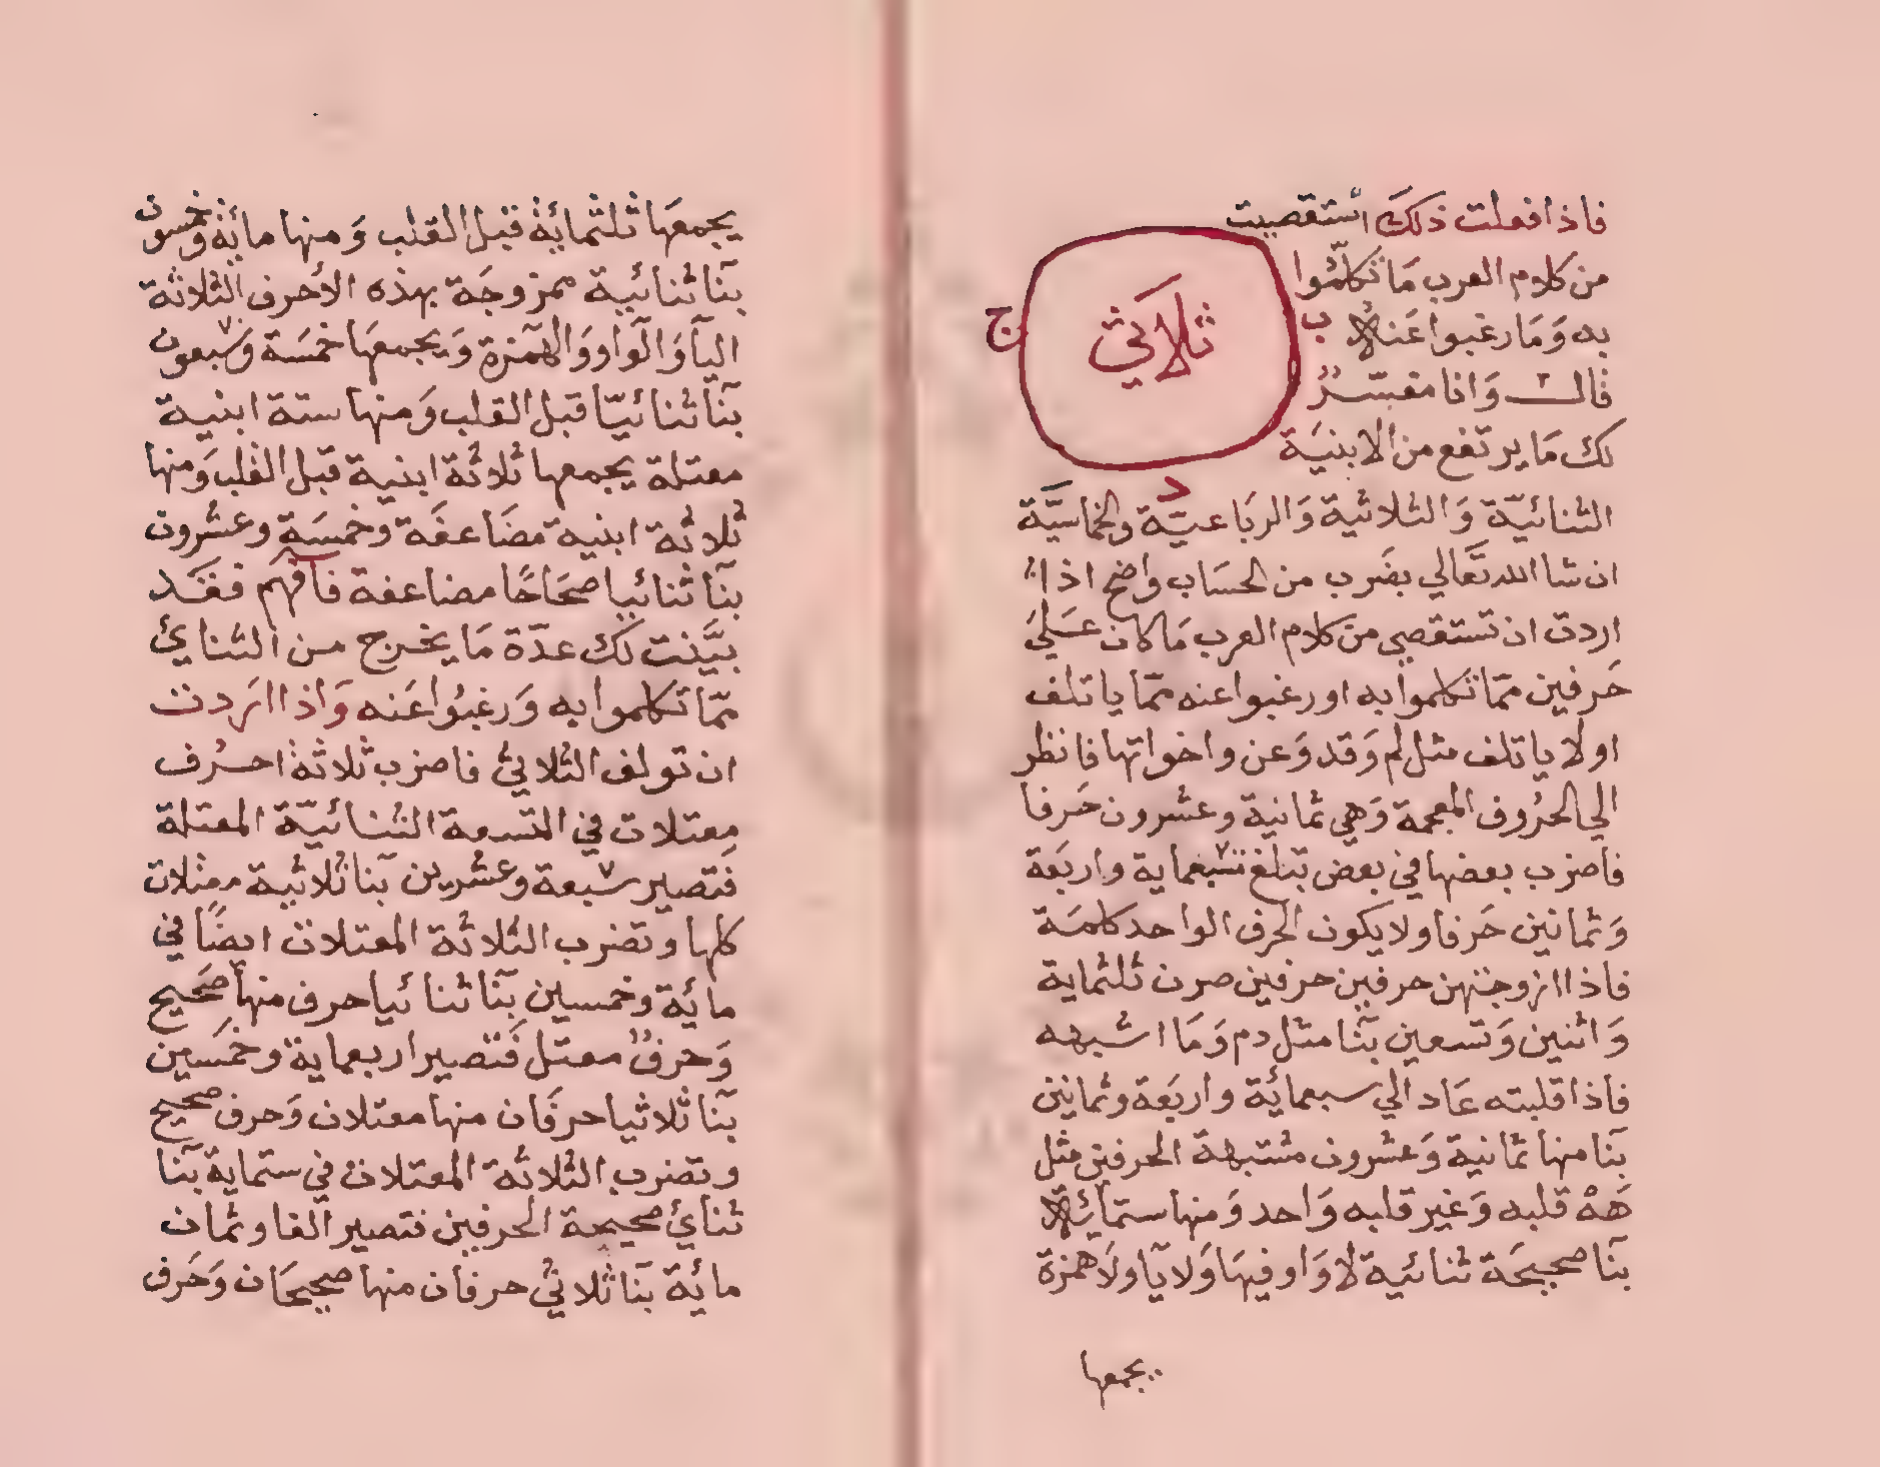 فاذا فعلت ذلك استقصيت
من كلام العرب مَا تكلّموا
به وَمَا رغبوا عَنه
ثلاثي
ب
ج
د
قال وَانا مفسّرٌ
لك مَا يرتفع من الابنيَة
الثنائيّة وَالثلاثية وَالربَاعيّة والخماسيَّة
ان شا الله تَعَالي بضَرب من الحسَاب واضح اذا
اردت ان تستقصي من كلام العرب مَا كان عَليَ
حَرفين ممّا تكلموا به او رغبوا عنه ممّا ياتلف
او لا ياتلف مثل لم وَقد وَعن واخواتها فانظر
الي الحرُوف المعجمة وَهي ثمانية وعشرون حَرفا
فاضرب بعضها في بعض تبلغ سبعماية واربَعَة
وَثمانين حَرفا ولا يكون الحرف الواحد كلمَة
فاذا ازوجتهن حرفين حرفين صرن ثلثماية
وَاثنين وَتسعين بنَا مثل دم وَمَا اشبهه
فاذا قلبته عَاد الي سبعمائة واربَعَة وثمانين
بنَا منها ثمانية وَعشرون مشتبهة الحرفين مثل
هَهْ قلبه وَغير قلبه وَاحد وَمنها ستمائة
بنَا صحيحَة ثنائية لا وَاو فيهَا وَلا يآ ولَا همزة
يجمعها
يجمعهَا ثلثمائة قبل القلب وَمنها مائة وخمسون
بنآ ثنائية ممزوجَة بهذه الأحرف الثلاثة
اليآ وَالوَاو وَالهمَزة وَيجمعهَا خمسَة وَسبعون
بنآ ثنائيّا قبل القلب وَمنها ستة ابنية
معتلة يجمعها ثلاثة ابنية قبل القلب وَمنها
ثلاثة ابنية مضَاعفَة وخمسَة وعشرون
بنآ ثنائيا صحَاحًا مضاعفة فافهم فقَد
بيَّنت لك عدّة مَا يخرج من الثنائئ
ممّا تكلموا به وَرغبوُا عَنه وَاذا ارَدت
ان تولف الثلاثئ فاضرب ثلاثة احرُف
معتلات في التسعة الثنائيّة المعتلة
فتصير سبعة وعشرين بنآ ثلاثية معتلات
كلها وتضرب الثلاثة المعتلات ايضًا في
مائة وخمسين بنآ ثنائيا حرف منها صَحيح
وَحرفٌ معتل فَتصير اربعماية وخمَسين
بنآ ثلاثيا حرفَان منها معتلان وَحرف صحيح
وتضرب الثلاثة المعتلات في ستماية بنآ
ثنائئ صحيحة الحرفين فتصير الفا وثمان
مائة بنآ ثلاثئ حرفان منها صحيحَان وَحَرف